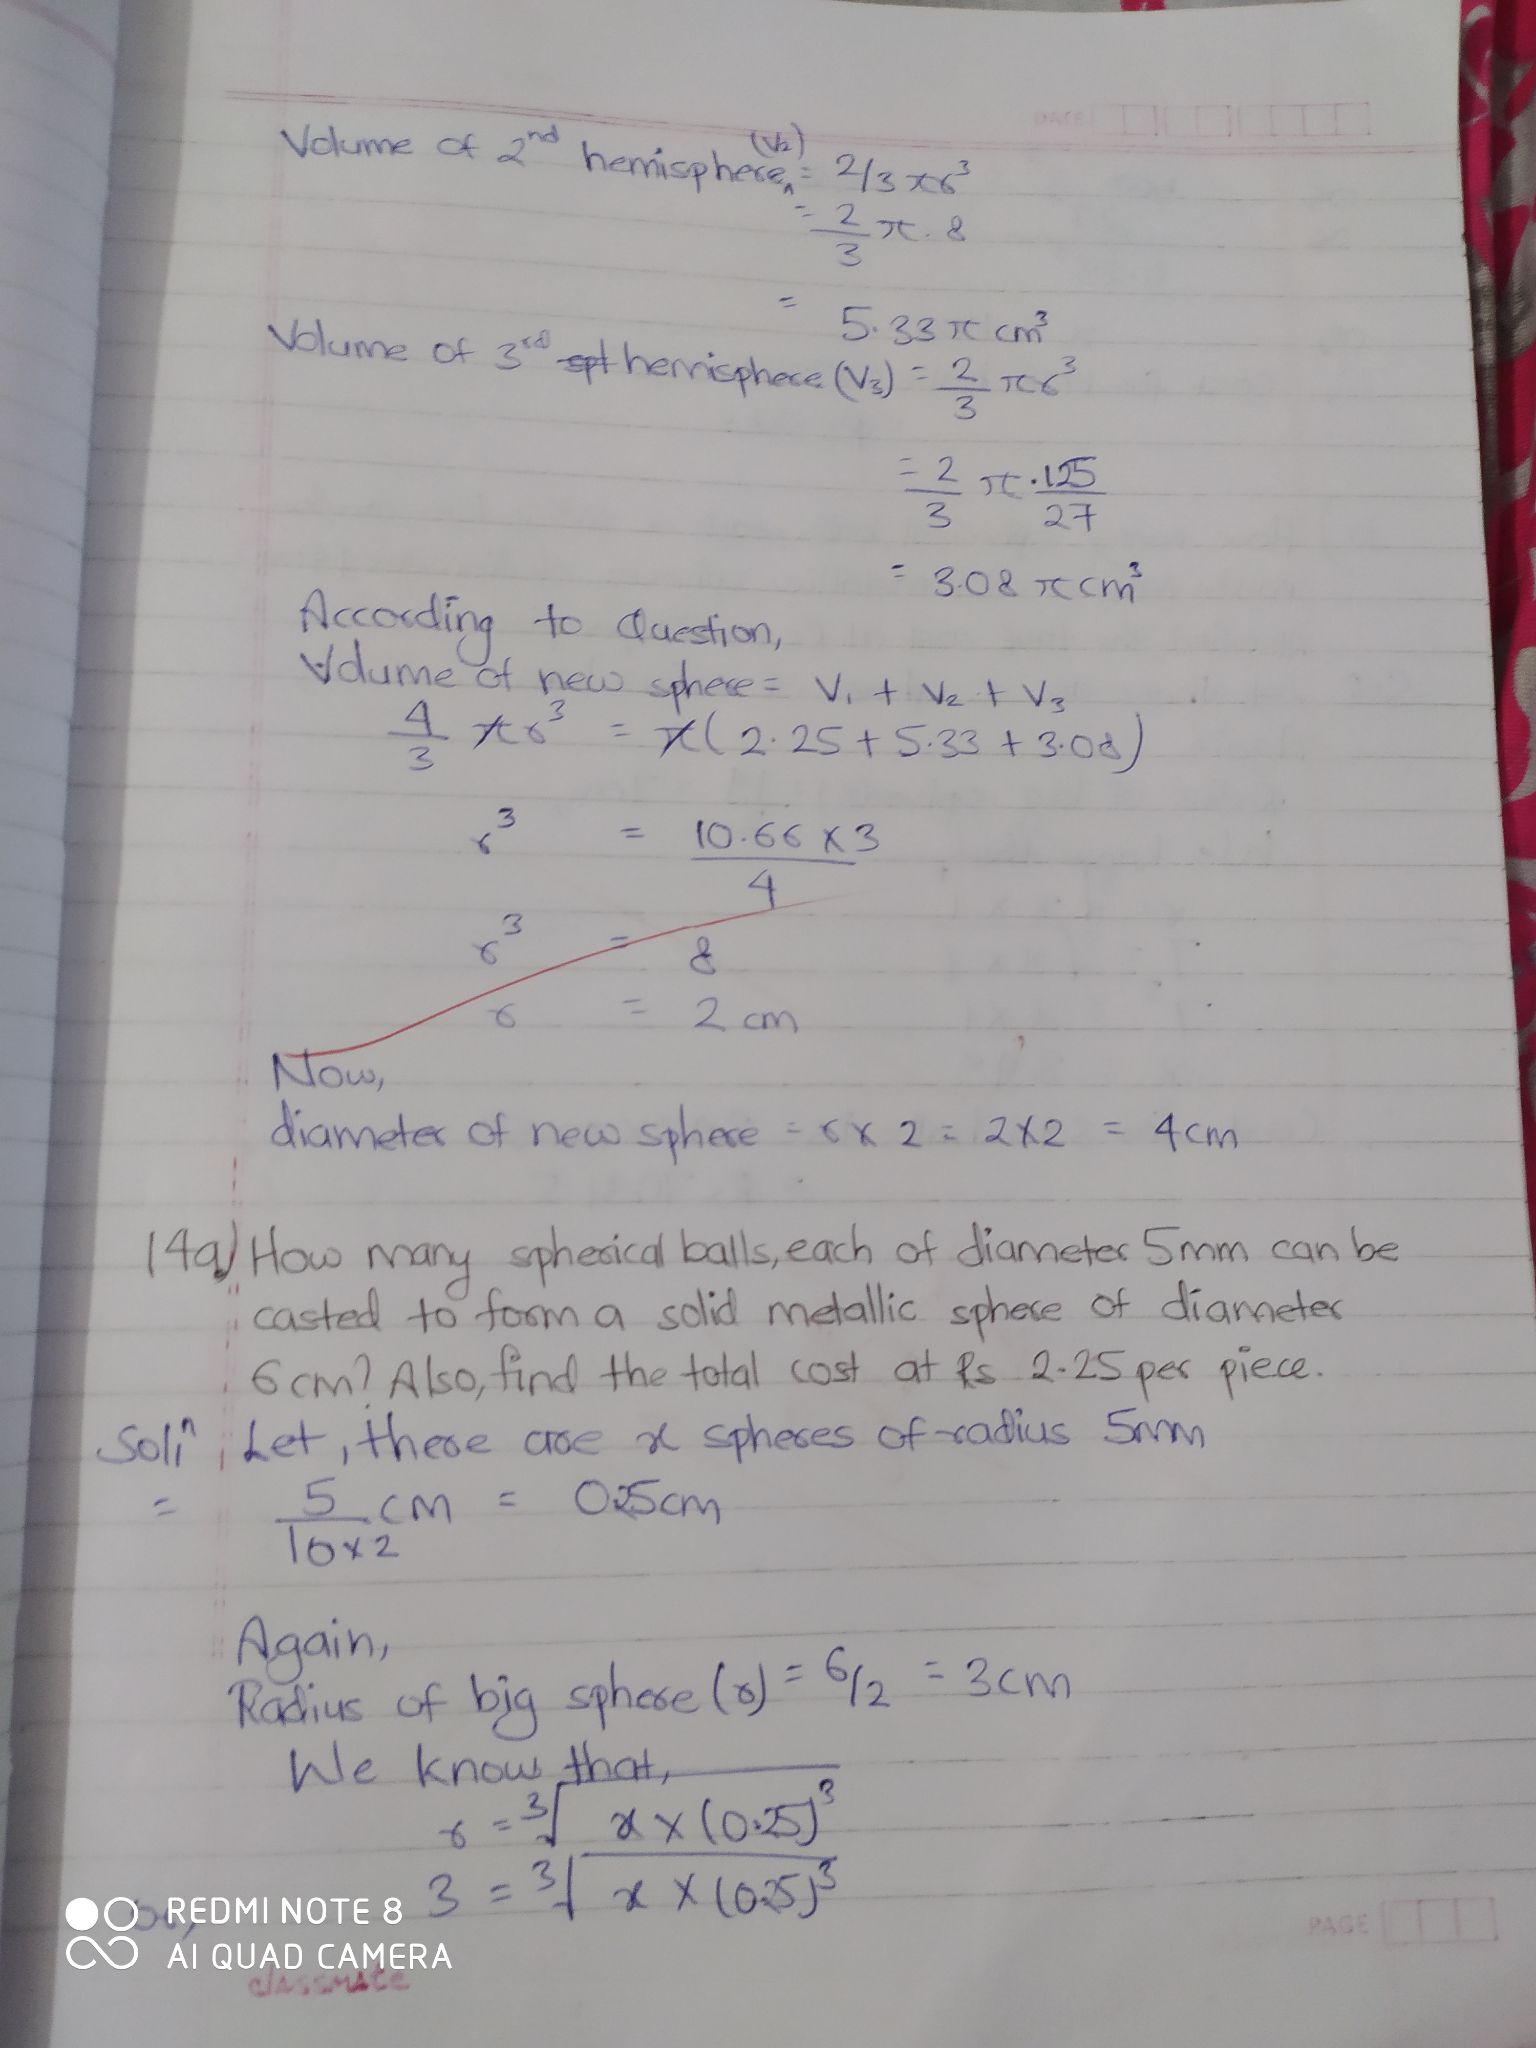 DATE
Volume of 2nd hemisphere (V2) = 2/3 πr³
= 2/3 π. 8
= 5.33 π cm³
Volume of 3rd hemisphere (V3) = 2/3 πr³
= 2/3 π . 125/27
= 3.08 π cm³
According to Question,
Volume of new sphere = V1 + V2 + V3
4/3 πr³ = π(2.25 + 5.33 + 3.08)
r³ = 10.66 x 3 / 4
r³ = 8
r = 2 cm
Now,
diameter of new sphere = r x 2 = 2x2 = 4cm
14a) How many spherical balls, each of diameter 5mm can be
casted to form a solid metallic sphere of diameter
6cm? Also, find the total cost at Rs 2.25 per piece.
Solⁿ Let, there are x spheres of radius 5mm
= 5/10x2 cm = 0.25cm
Again,
Radius of big sphere (r) = 6/2 = 3cm
We know that,
r = ³√x x (0.25)³
or, 3 = ³√x x (0.25)³
REDMI NOTE 8
AI QUAD CAMERA
PAGE
classmate